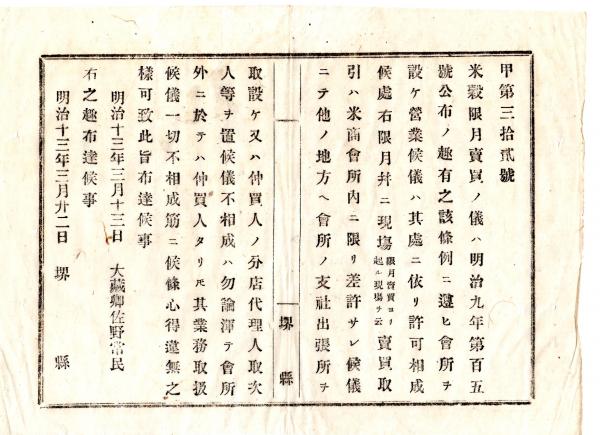 甲第三拾貳號
米穀限月賣買ノ儀ハ明治九年第百五
號公布ノ趣有之該條例ニ遵ヒ會所ヲ
設ケ營業候儀ハ其處ニ依リ許可相成
候處右限月幷ニ現塲限月賣買ヨリ起ル現塲ヲ云賣買取
引ハ米商會所內ニ限リ差許サレ候儀
ニテ他ノ地方ヘ會所ノ支社出張所ヲ
堺縣
取設ケ又ハ仲買人ノ分店代理人取次
人等ヲ置候儀不相成ハ勿論渾テ會所
外ニ於テハ仲買人タリ𪜈其業務取扱
候儀一切不相成筋ニ候條心得違無之
樣可致此旨布達候事
明治十三年三月十三日 大藏卿佐野常民
右之趣布達候事
明治十三年三月廿二日 堺縣